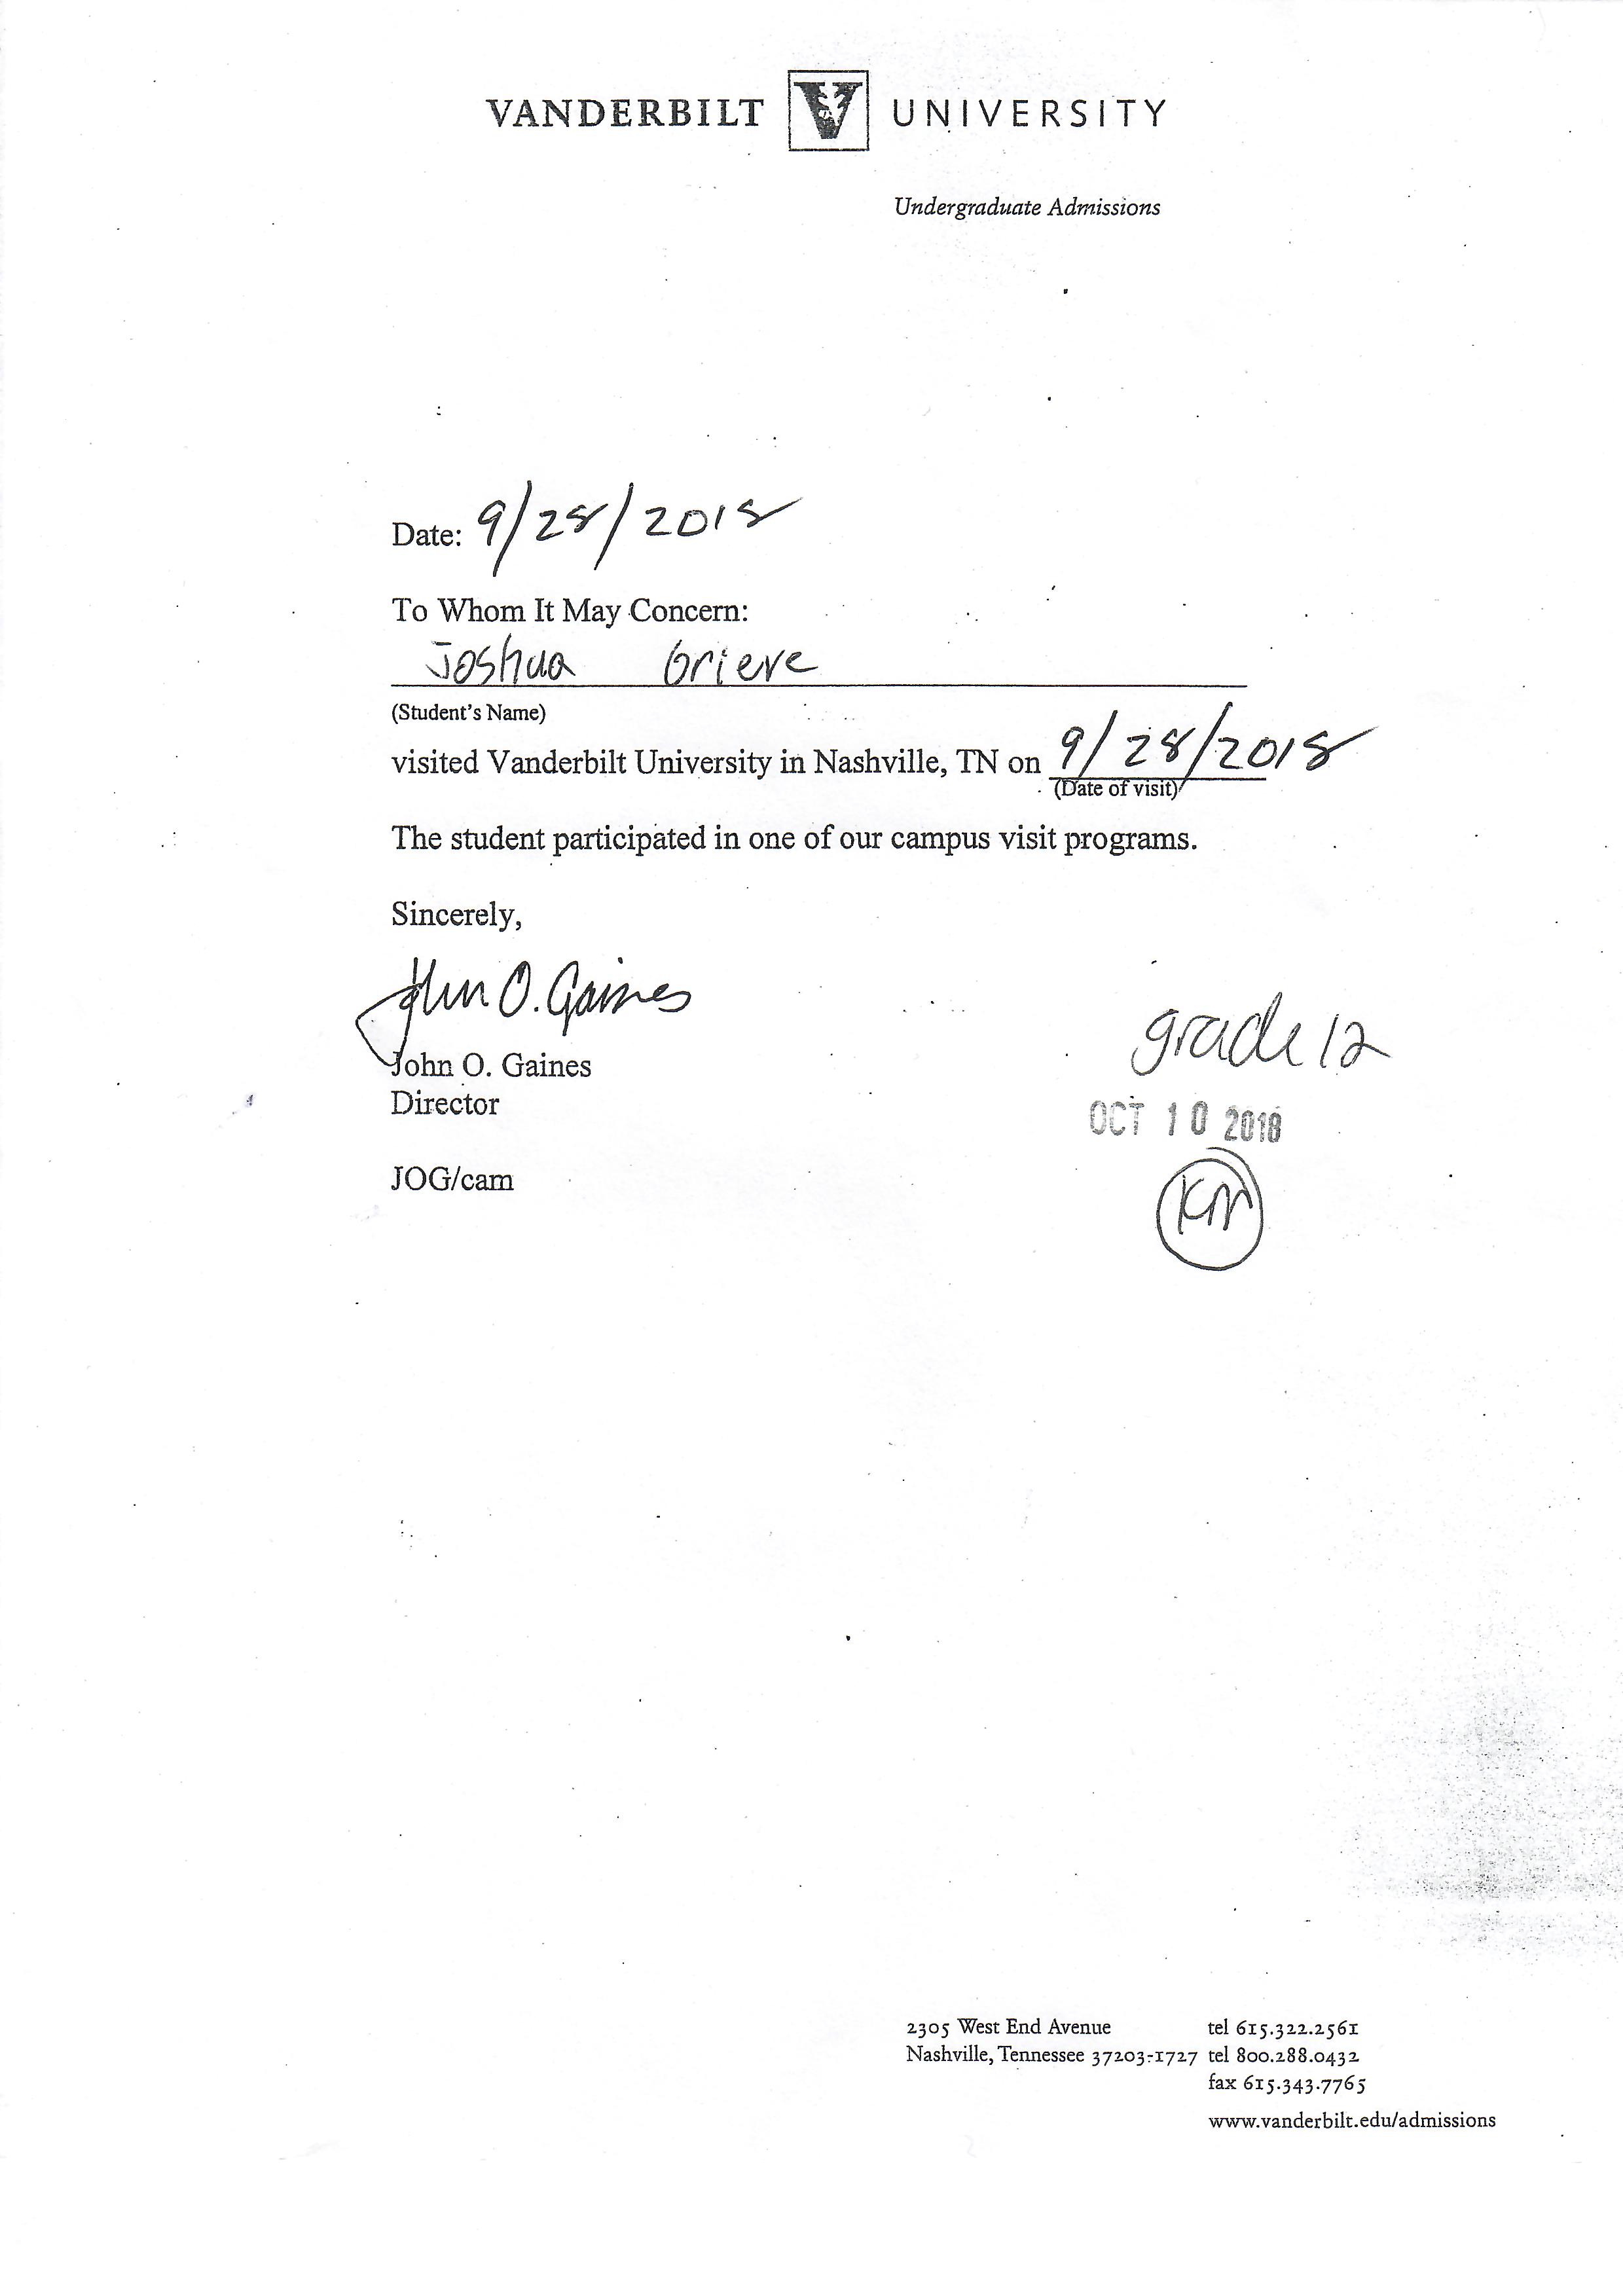 VANDERBILT V UNIVERSITY
Undergraduate Admissions
Date: 9/28/2018
To Whom It May Concern:
Joshua Grieve
(Student's Name)
visited Vanderbilt University in Nashville, TN on 9/28/2018
(Date of visit)
The student participated in one of our campus visit programs.
Sincerely,
John O. Gaines
John O. Gaines
Director
JOG/cam
grade 12
OCT 10 2018
KM
2305 West End Avenue tel 615.322.2561
Nashville, Tennessee 37203-1727 tel 800.288.0432
fax 615.343.7765
www.vanderbilt.edu/admissions